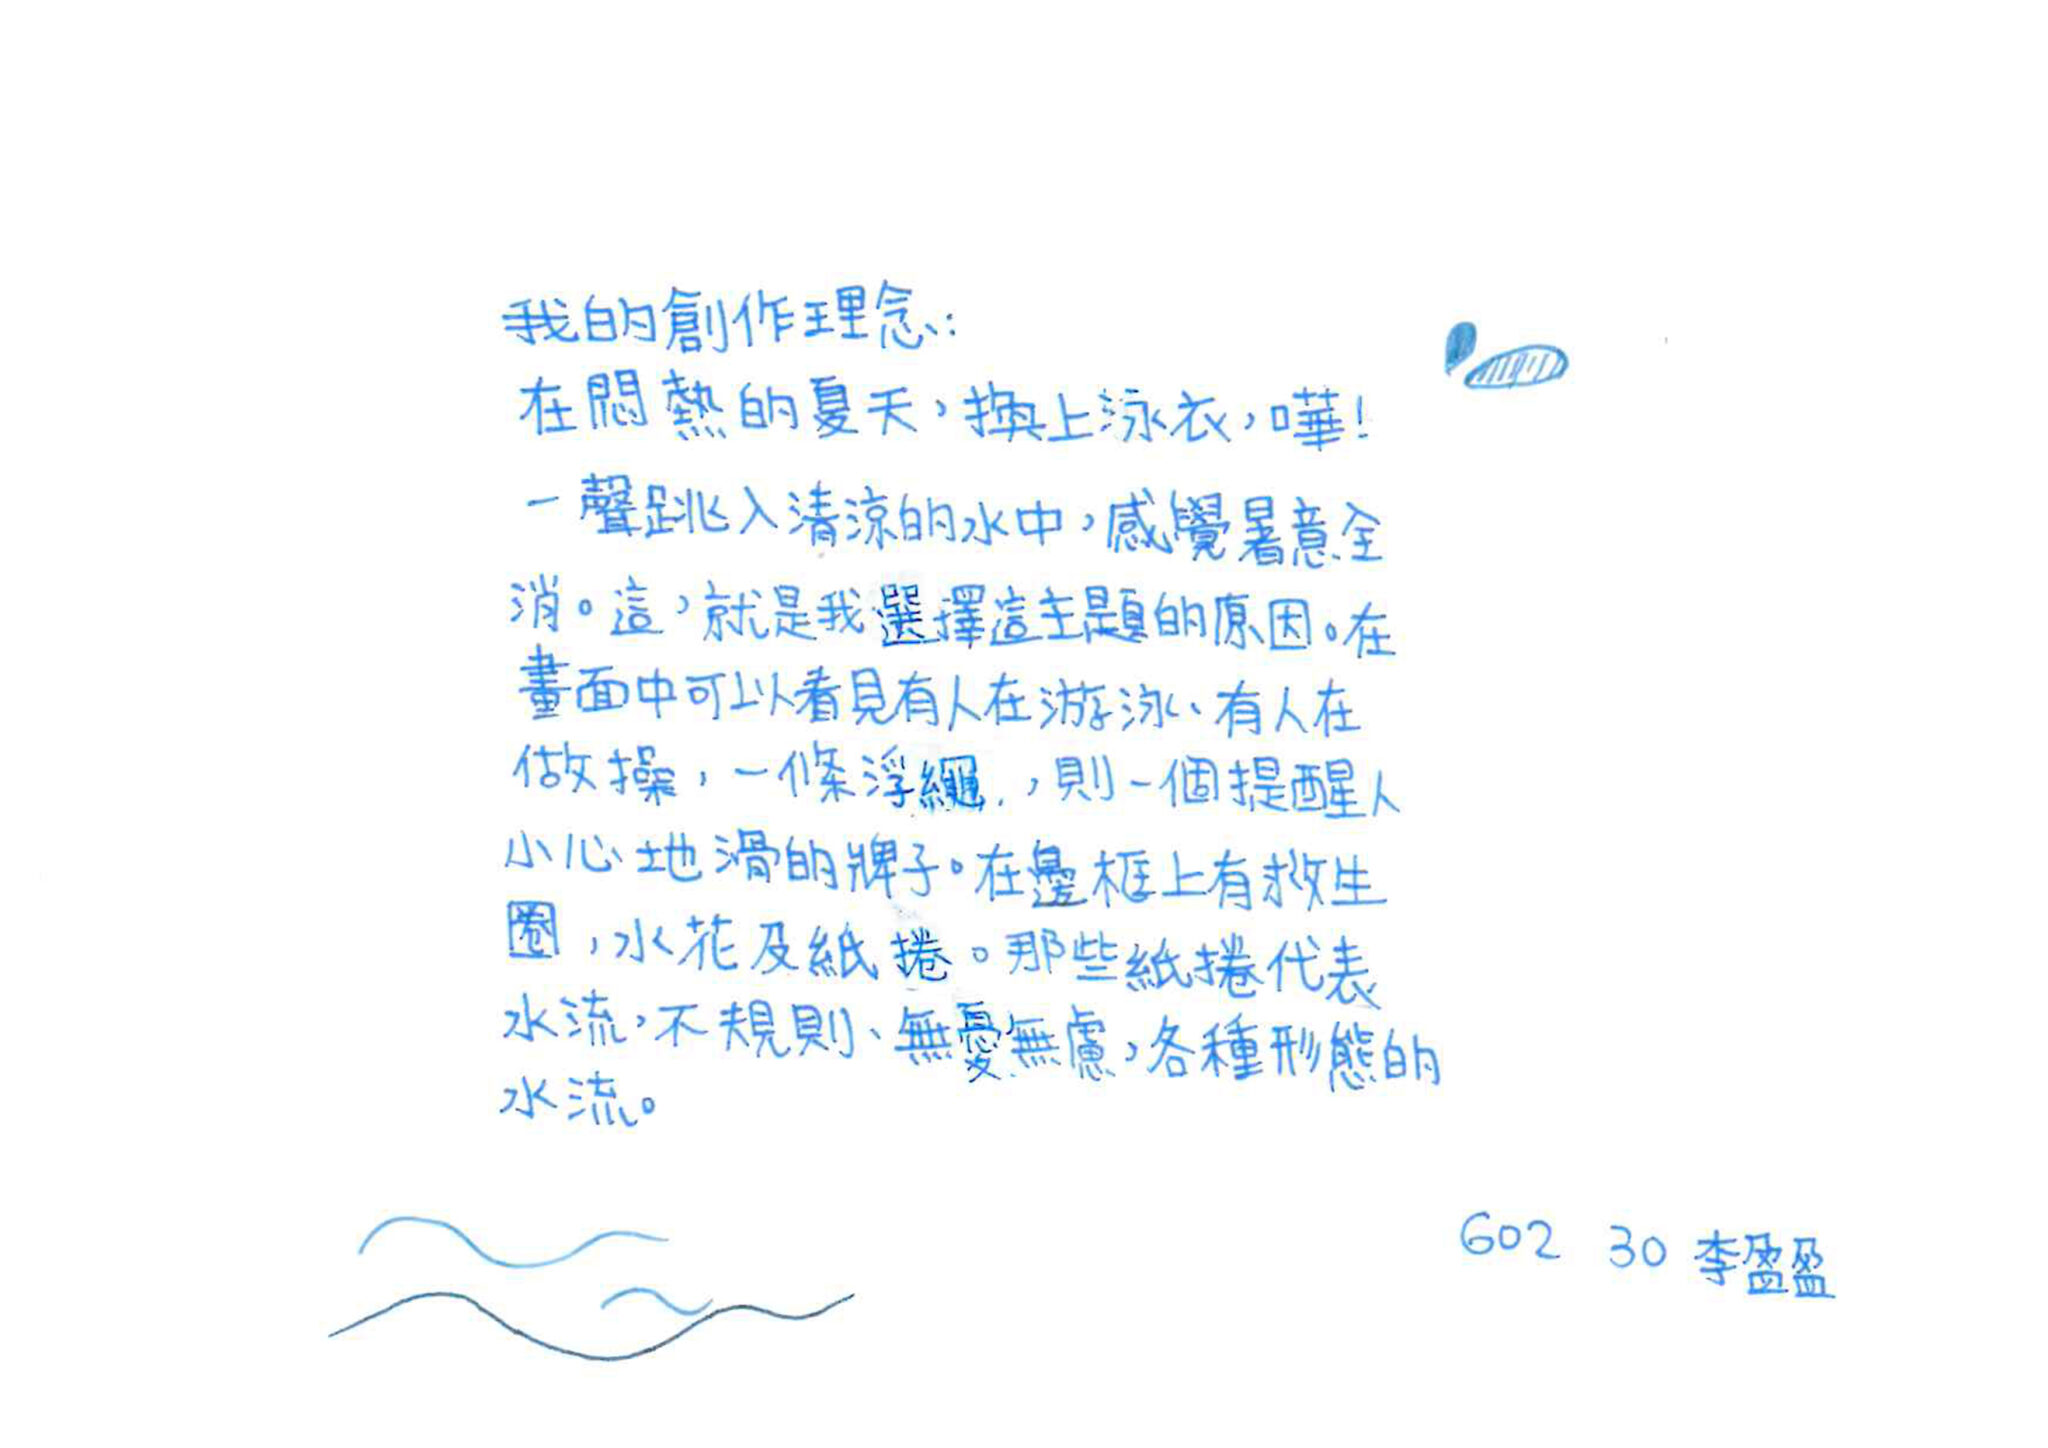 我的創作理念:
在悶熱的夏天，換上泳衣，嘩!
一聲跳入清涼的水中，感覺暑意全
消。這，就是我選擇這主題的原因。在
畫面中可以看見有人在游泳、有人在
做操，一條浮繩，則一個提醒人
小心地滑的牌子。在邊框上有救生
圈，水花及紙捲。那些紙捲代表
水流，不規則、無憂無慮，各種形態的
水流。
602 30 李盈盈